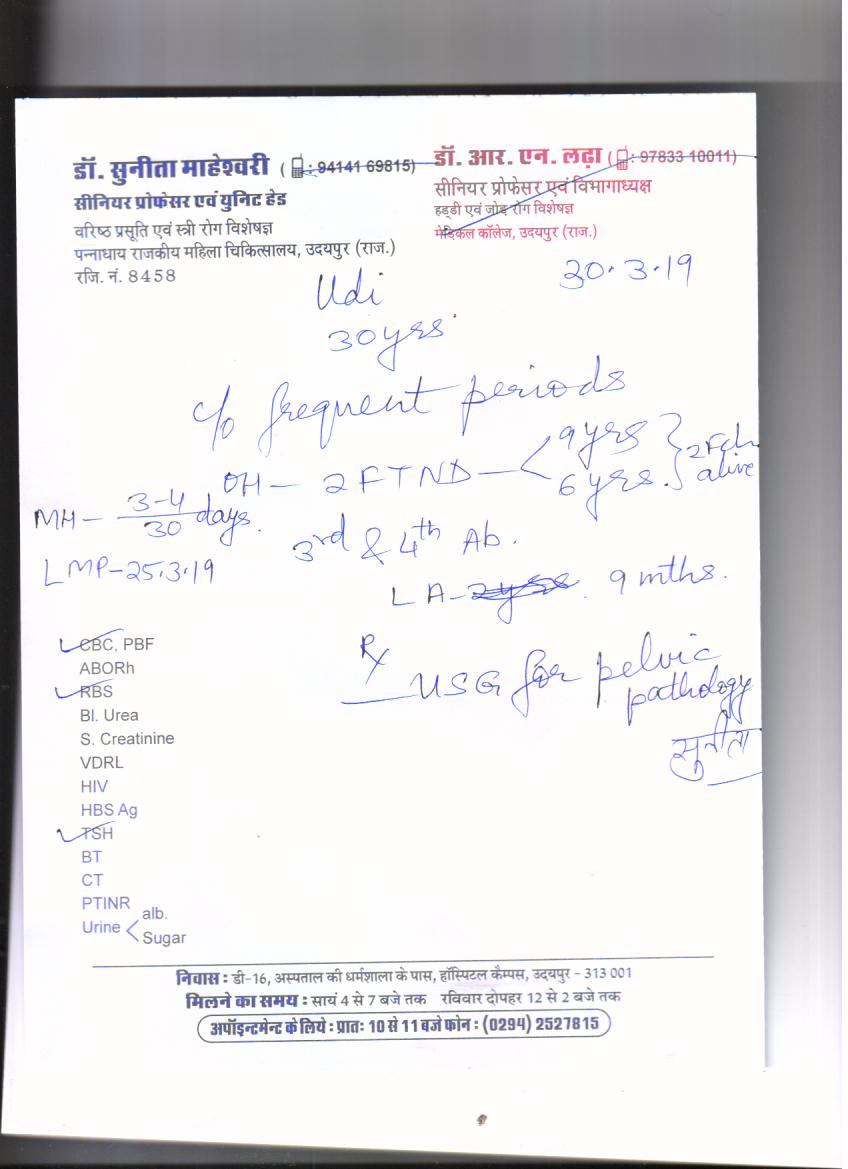 डॉ. सुनीता माहेश्वरी ( : 94141 69815)
सीनियर प्रोफेसर एवं युनिट हेड
वरिष्ठ प्रसूति एवं स्त्री रोग विशेषज्ञ
पन्नाधाय राजकीय महिला चिकित्सालय, उदयपुर (राज.)
रजि. नं. 8458
डॉ. आर. एन. लढ़ा ( : 97833 10011)
सीनियर प्रोफेसर एवं विभागाध्यक्ष
हड्डी एवं जोड़ रोग विशेषज्ञ
मेडिकल कॉलेज, उदयपुर (राज.)
30.3.19
Udi
30yrs.
c/o frequent periods
OH - 2 FTND - < 9 yrs
6 yrs. } 2 Fch alive
MH - 3-4/30 days.
3rd & 4th Ab.
LMP-25.3.19
LA- 2yrs. 9 mths.
Rx
USG for pelvic
pathology
सुनीता
CBC, PBF
ABORh
RBS
Bl. Urea
S. Creatinine
VDRL
HIV
HBS Ag
TSH
BT
CT
PTINR
Urine < alb.
Sugar
निवास : डी-16, अस्पताल की धर्मशाला के पास, हॉस्पिटल कैम्पस, उदयपुर - 313 001
मिलने का समय : सायं 4 से 7 बजे तक रविवार दोपहर 12 से 2 बजे तक
अपॉइन्टमेन्ट के लिये : प्रातः 10 से 11 बजे फोन : (0294) 2527815